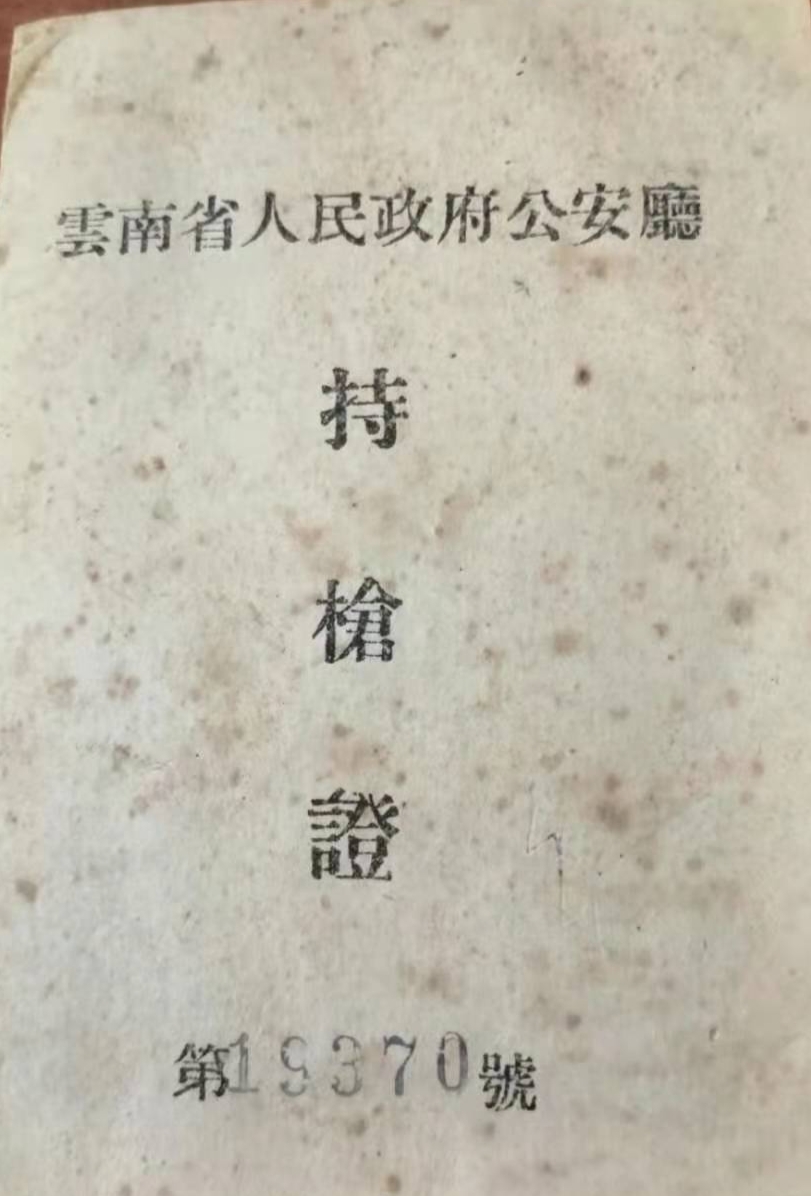 雲南省人民政府公安廳
持
槍
證
第19370號